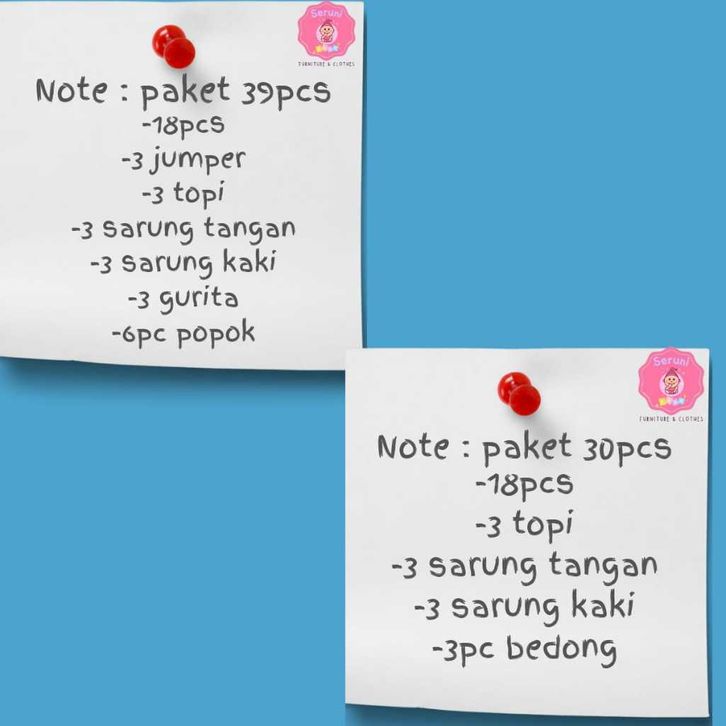 Seruni
FURNITURE & CLOTHES
Note : paket 39pcs
-18pcs
-3 jumper
-3 topi
-3 sarung tangan
-3 sarung kaki
-3 gurita
-6pc popok
Seruni
FURNITURE & CLOTHES
Note : paket 30pcs
-18pcs
-3 topi
-3 sarung tangan
-3 sarung kaki
-3pc bedong